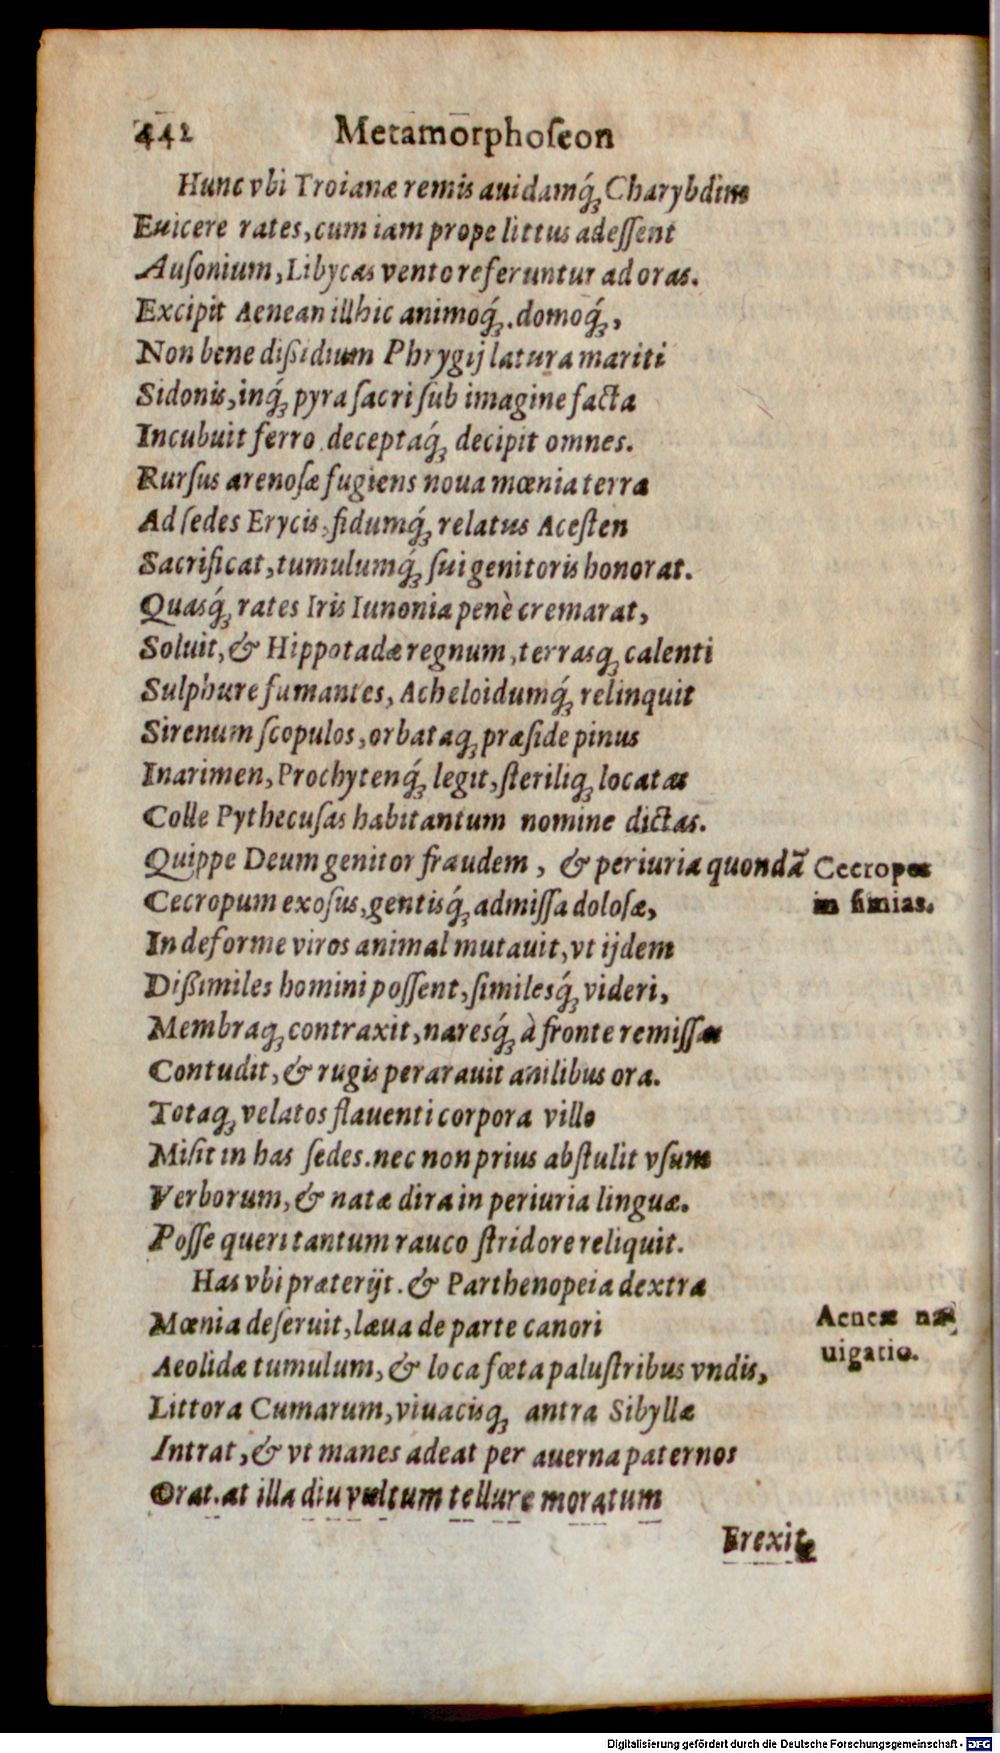 442 Metamorphoſeon
Hunc vbi Troianæ remis auidamq́; Charybdim
Euicere rates, cum iam prope littus adeſſent
Auſonium, Libycas vento referuntur ad oras.
Excipit Aenean illhic animoq́;. domoq́;,
Non bene dißidium Phrygij latura mariti
Sidonis, inq́; pyra ſacri ſub imagine facta
Incubuit ferro deceptaq́; decipit omnes.
Rurſus arenoſæ fugiens noua mœnia terræ
Ad ſedes Erycis, fidumq́; relatus Aceſten
Sacrificat, tumulumq́; ſui genitoris honorat.
Quasq́; rates Iris Iunonia penè cremarat,
Soluit, & Hippotadæ regnum, terrasq; calenti
Sulphure fumantes, Acheloidumq́; relinquit
Sirenum ſcopulos, orbataq; præſide pinus
Inarimen, Prochytenq́; legit, ſteriliq; locatas
Colle Pythecuſas habitantum nomine dictas.
Quippe Deum genitor fraudem, & periuria quondã
Cecropes
Cecropum exoſus, gentisq́; admiſſa doloſæ,
in ſimias.
In deforme viros animal mutauit, vt ijdem
Dißimiles homini poſſent, ſimilesq́; videri,
Membraq; contraxit, naresq́; à fronte remiſſas
Contudit, & rugis perarauit anilibus ora.
Totaq; velatos flauenti corpora villo
Miſit in has ſedes. nec non prius abſtulit vſum
Verborum, & natæ dira in periuria linguæ.
Poſſe queri tantum rauco ſtridore reliquit.
Has vbi præterijt. & Parthenopeia dextra
Mœnia deſeruit, læua de parte canori
Aeneæ na-
Aeolidæ tumulum, & loca fœta paluſtribus vndis,
uigatio.
Littora Cumarum, viuacisq; antra Sibyllæ
Intrat, & vt manes adeat per auerna paternos
Orat. at illa diu vultum tellure moratum
Erexit,
Digitalisierung gefördert durch die Deutsche Forschungsgemeinschaft - DFG